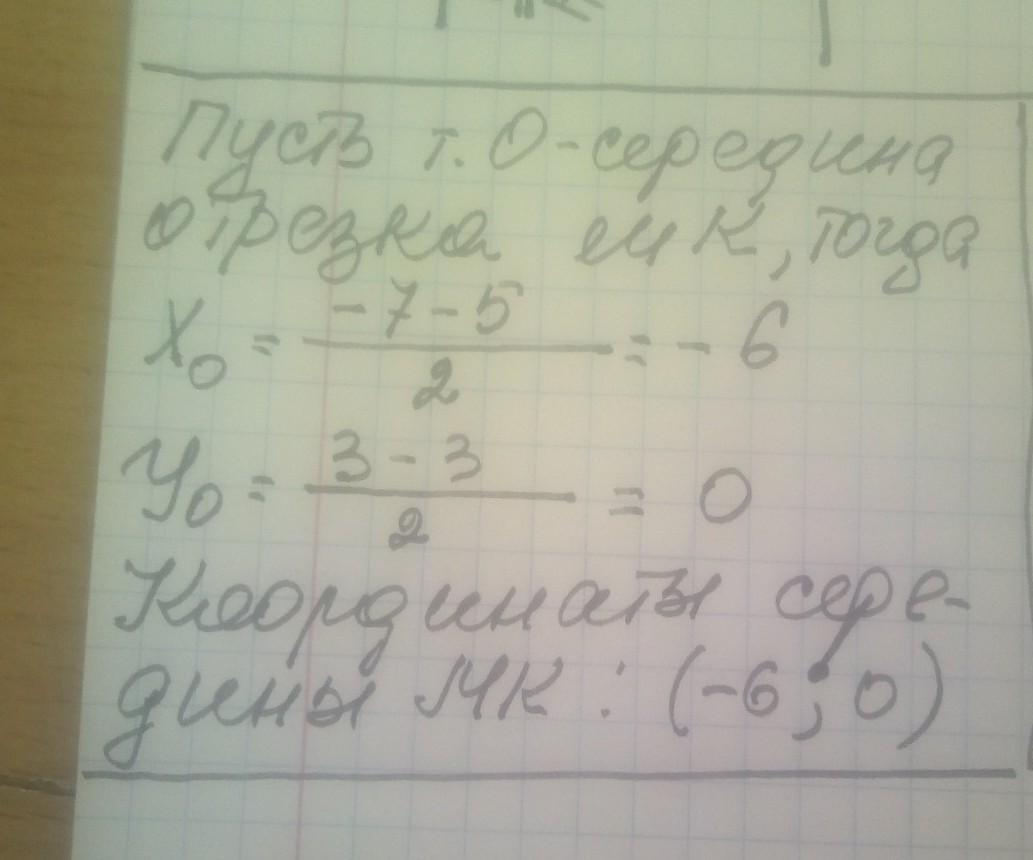 Пусть т. О-середина
отрезка МК, тогда
X₀ = (-7-5)/2 = -6
У₀ = (3-3)/2 = 0
Координаты сере-
дины МК : (-6 ; 0)